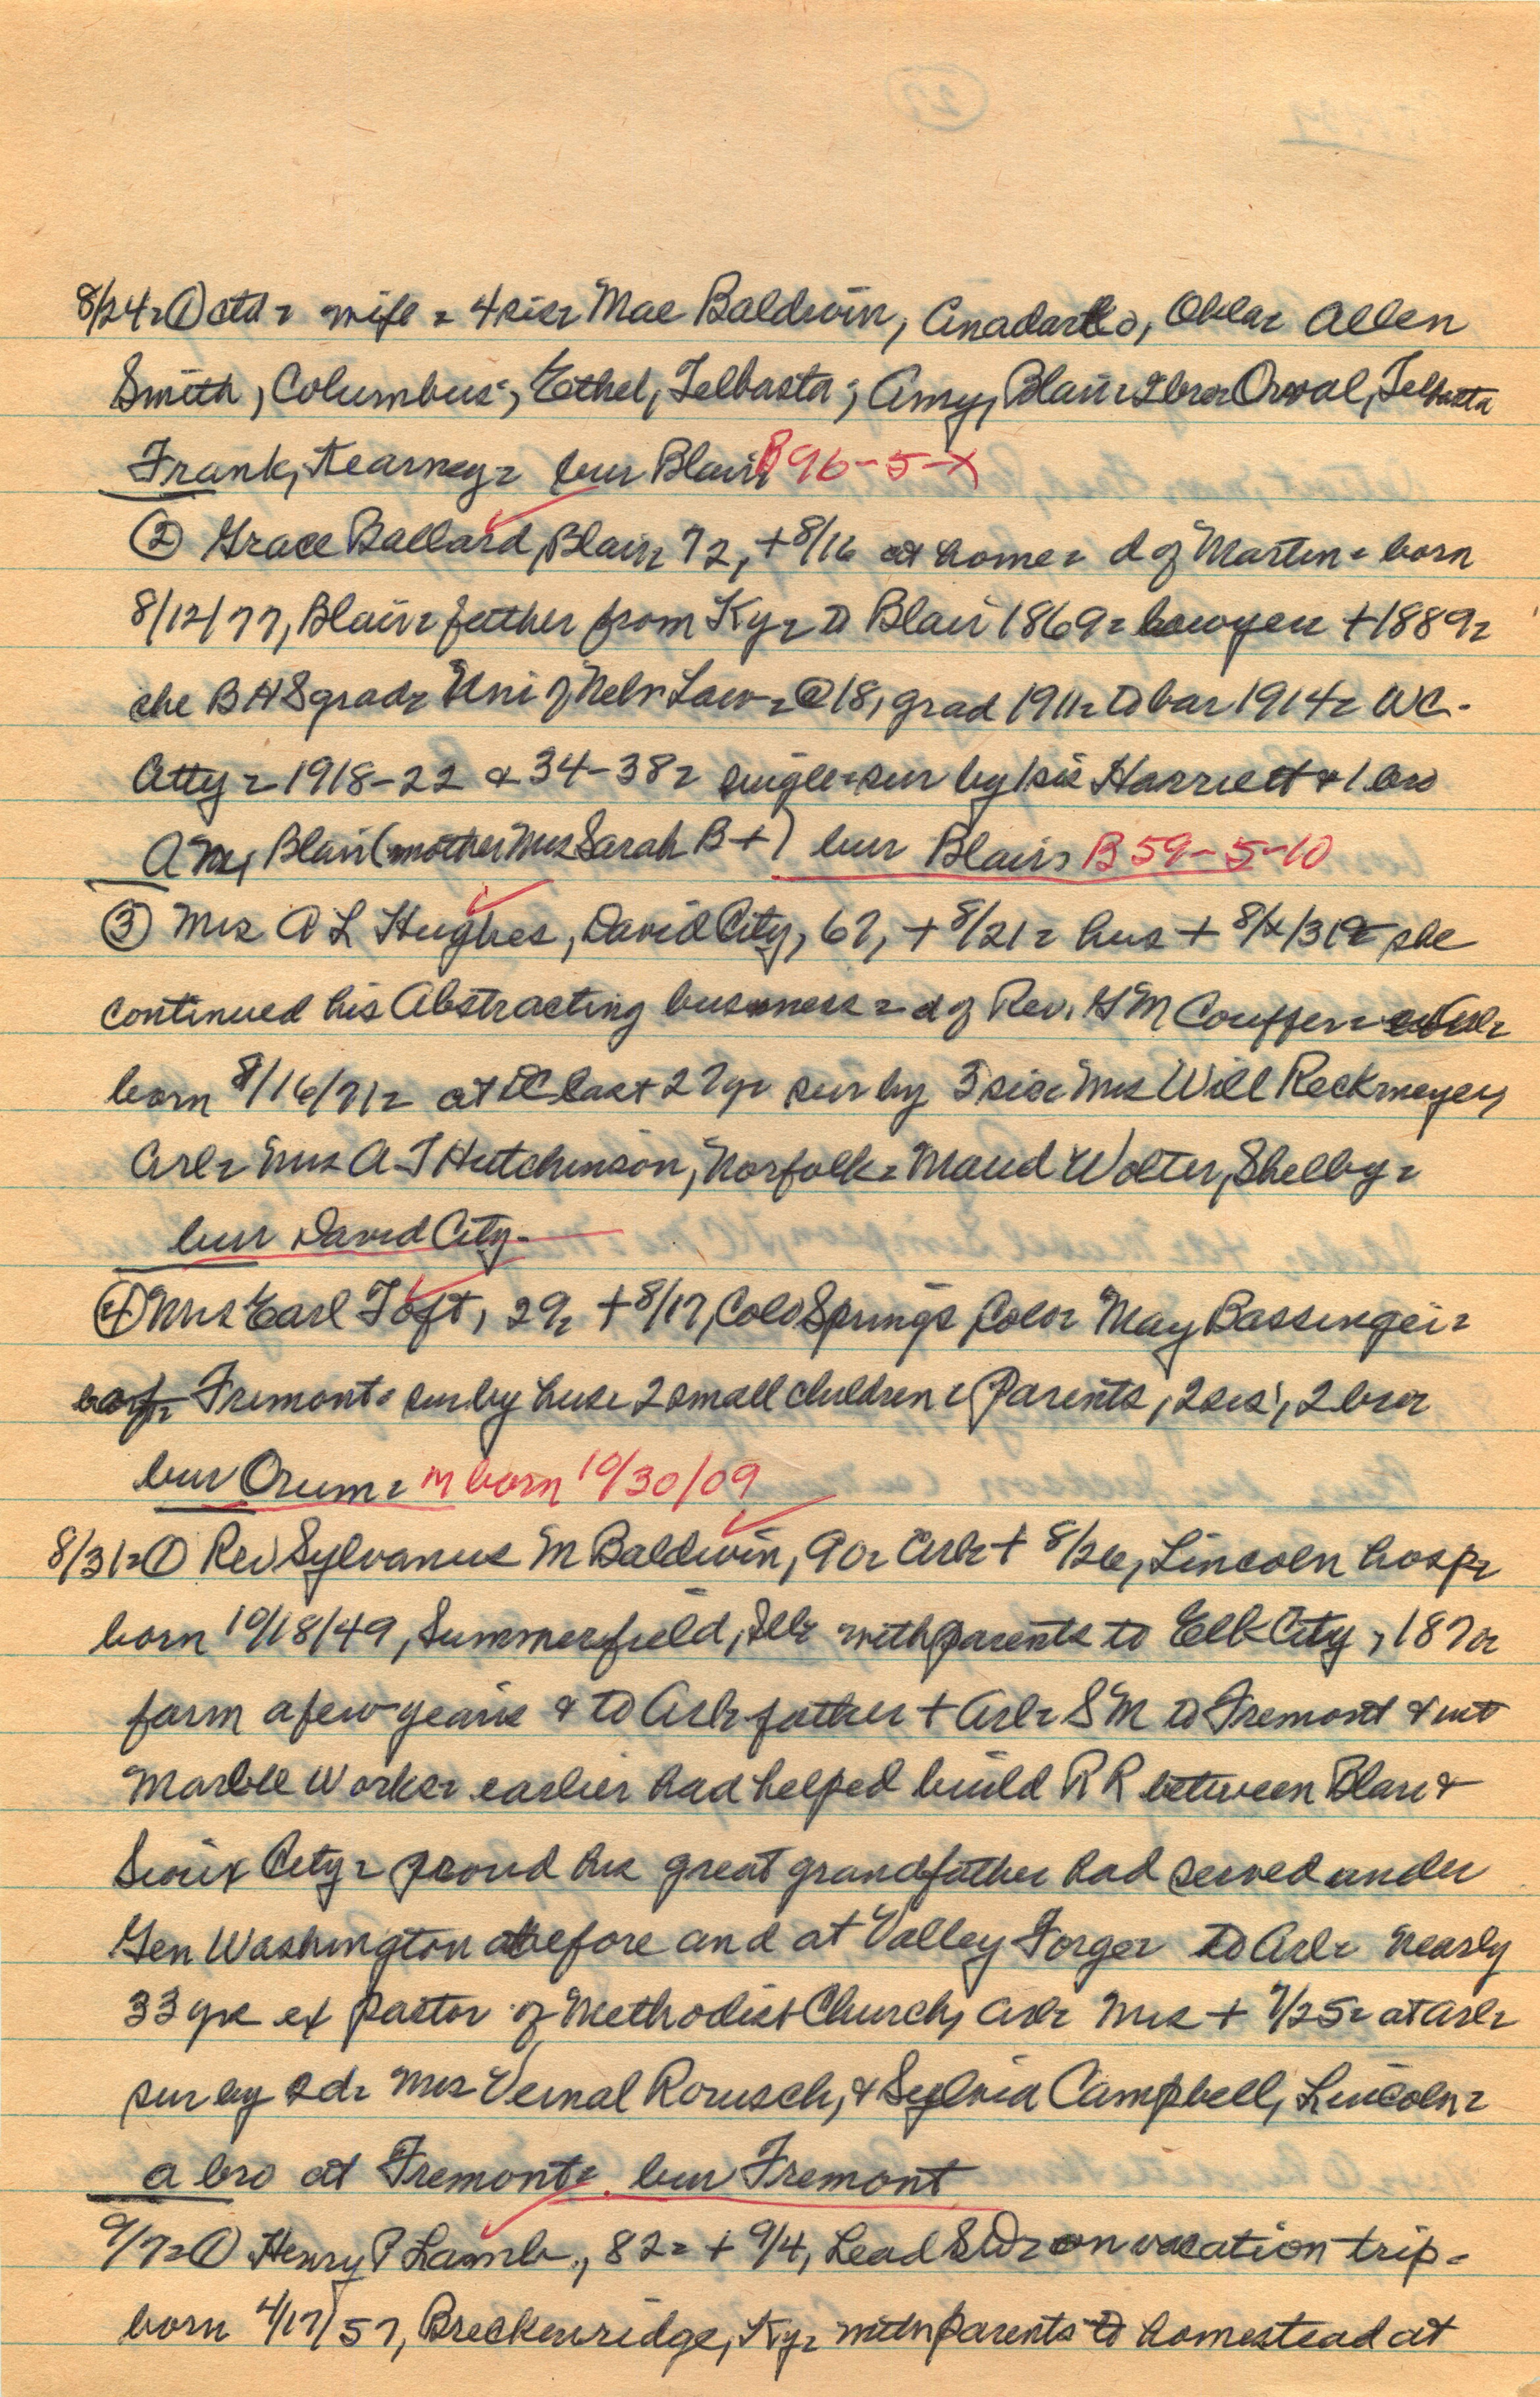 8/24= ① ctd = wife = 4 sis= Mae Baldwin, Anadarko, Okla= Allen
Smith, Columbus; Ethel, Telbasta; Amy, Blair= 2 bro= Orval, Telbasta
Frank, Kearney= bur Blair B 96-5-X
② Grace Ballard, Blair, 72, + 8/16 at home = d of Martin = born
8/12/77, Blair= father from Ky= to Blair 1869= lawyer + 1889=
she BHS grad= Uni of Nebr Law= @ 18, grad 1911= to bar 1914= WC.
Atty = 1918-22 & 34-38= single = sur by 1 sis Harriett & 1 bro
AM, Blair (mother Mrs Sarah B +) bur Blair, B 59-5-10
③ Mrs A L Hughes, David City, 67, + 8/21= hus + 8/x/31= she
continued his Abstracting business = d of Rev. H M Couffer= Arl=
born 8/16/71= at DC last 27 yr sur by 3 sis= Mrs Will Reckmeyer,
Arl= Mrs A J Hutchinson, Norfolk= Maud Wolter, Shelby=
bur David City.
④ Mrs Earl Toft, 29, + 8/17, Colo Springs, Colo= May Bassinger=
of= Fremont= sur by hus= 2 small children= Parents, 2 sis, 2 bro=
bur Orum= m born 10/30/09
8/31= ① Rev Sylvanus M Baldwin, 90= Arl= + 8/26, Lincoln hosp=
born 10/18/49, Summerfield, Ill= with parents to Elk City, 187
farm a few years & to Arl= father + Arl= S M to Fremont & into
Marble Work= earlier had helped build RR between Blair &
Sioux City= proud his great grandfather had served under
Gen Washington before and at Valley Forge= to Arl= nearly
33 yrs ex pastor of Methodist Church, Arl= Mrs + 7/25= at Arl=
sur by 2 d= Mrs Vernal Rorusch, & Sylvia Campbell, Lincoln=
a bro at Fremont= bur Fremont
9/7= ① Henry P Lamb, 82= + 9/4, Lead SD= on vacation trip=
born 4/17/57, Breckenridge, Ky= with parents to homestead at